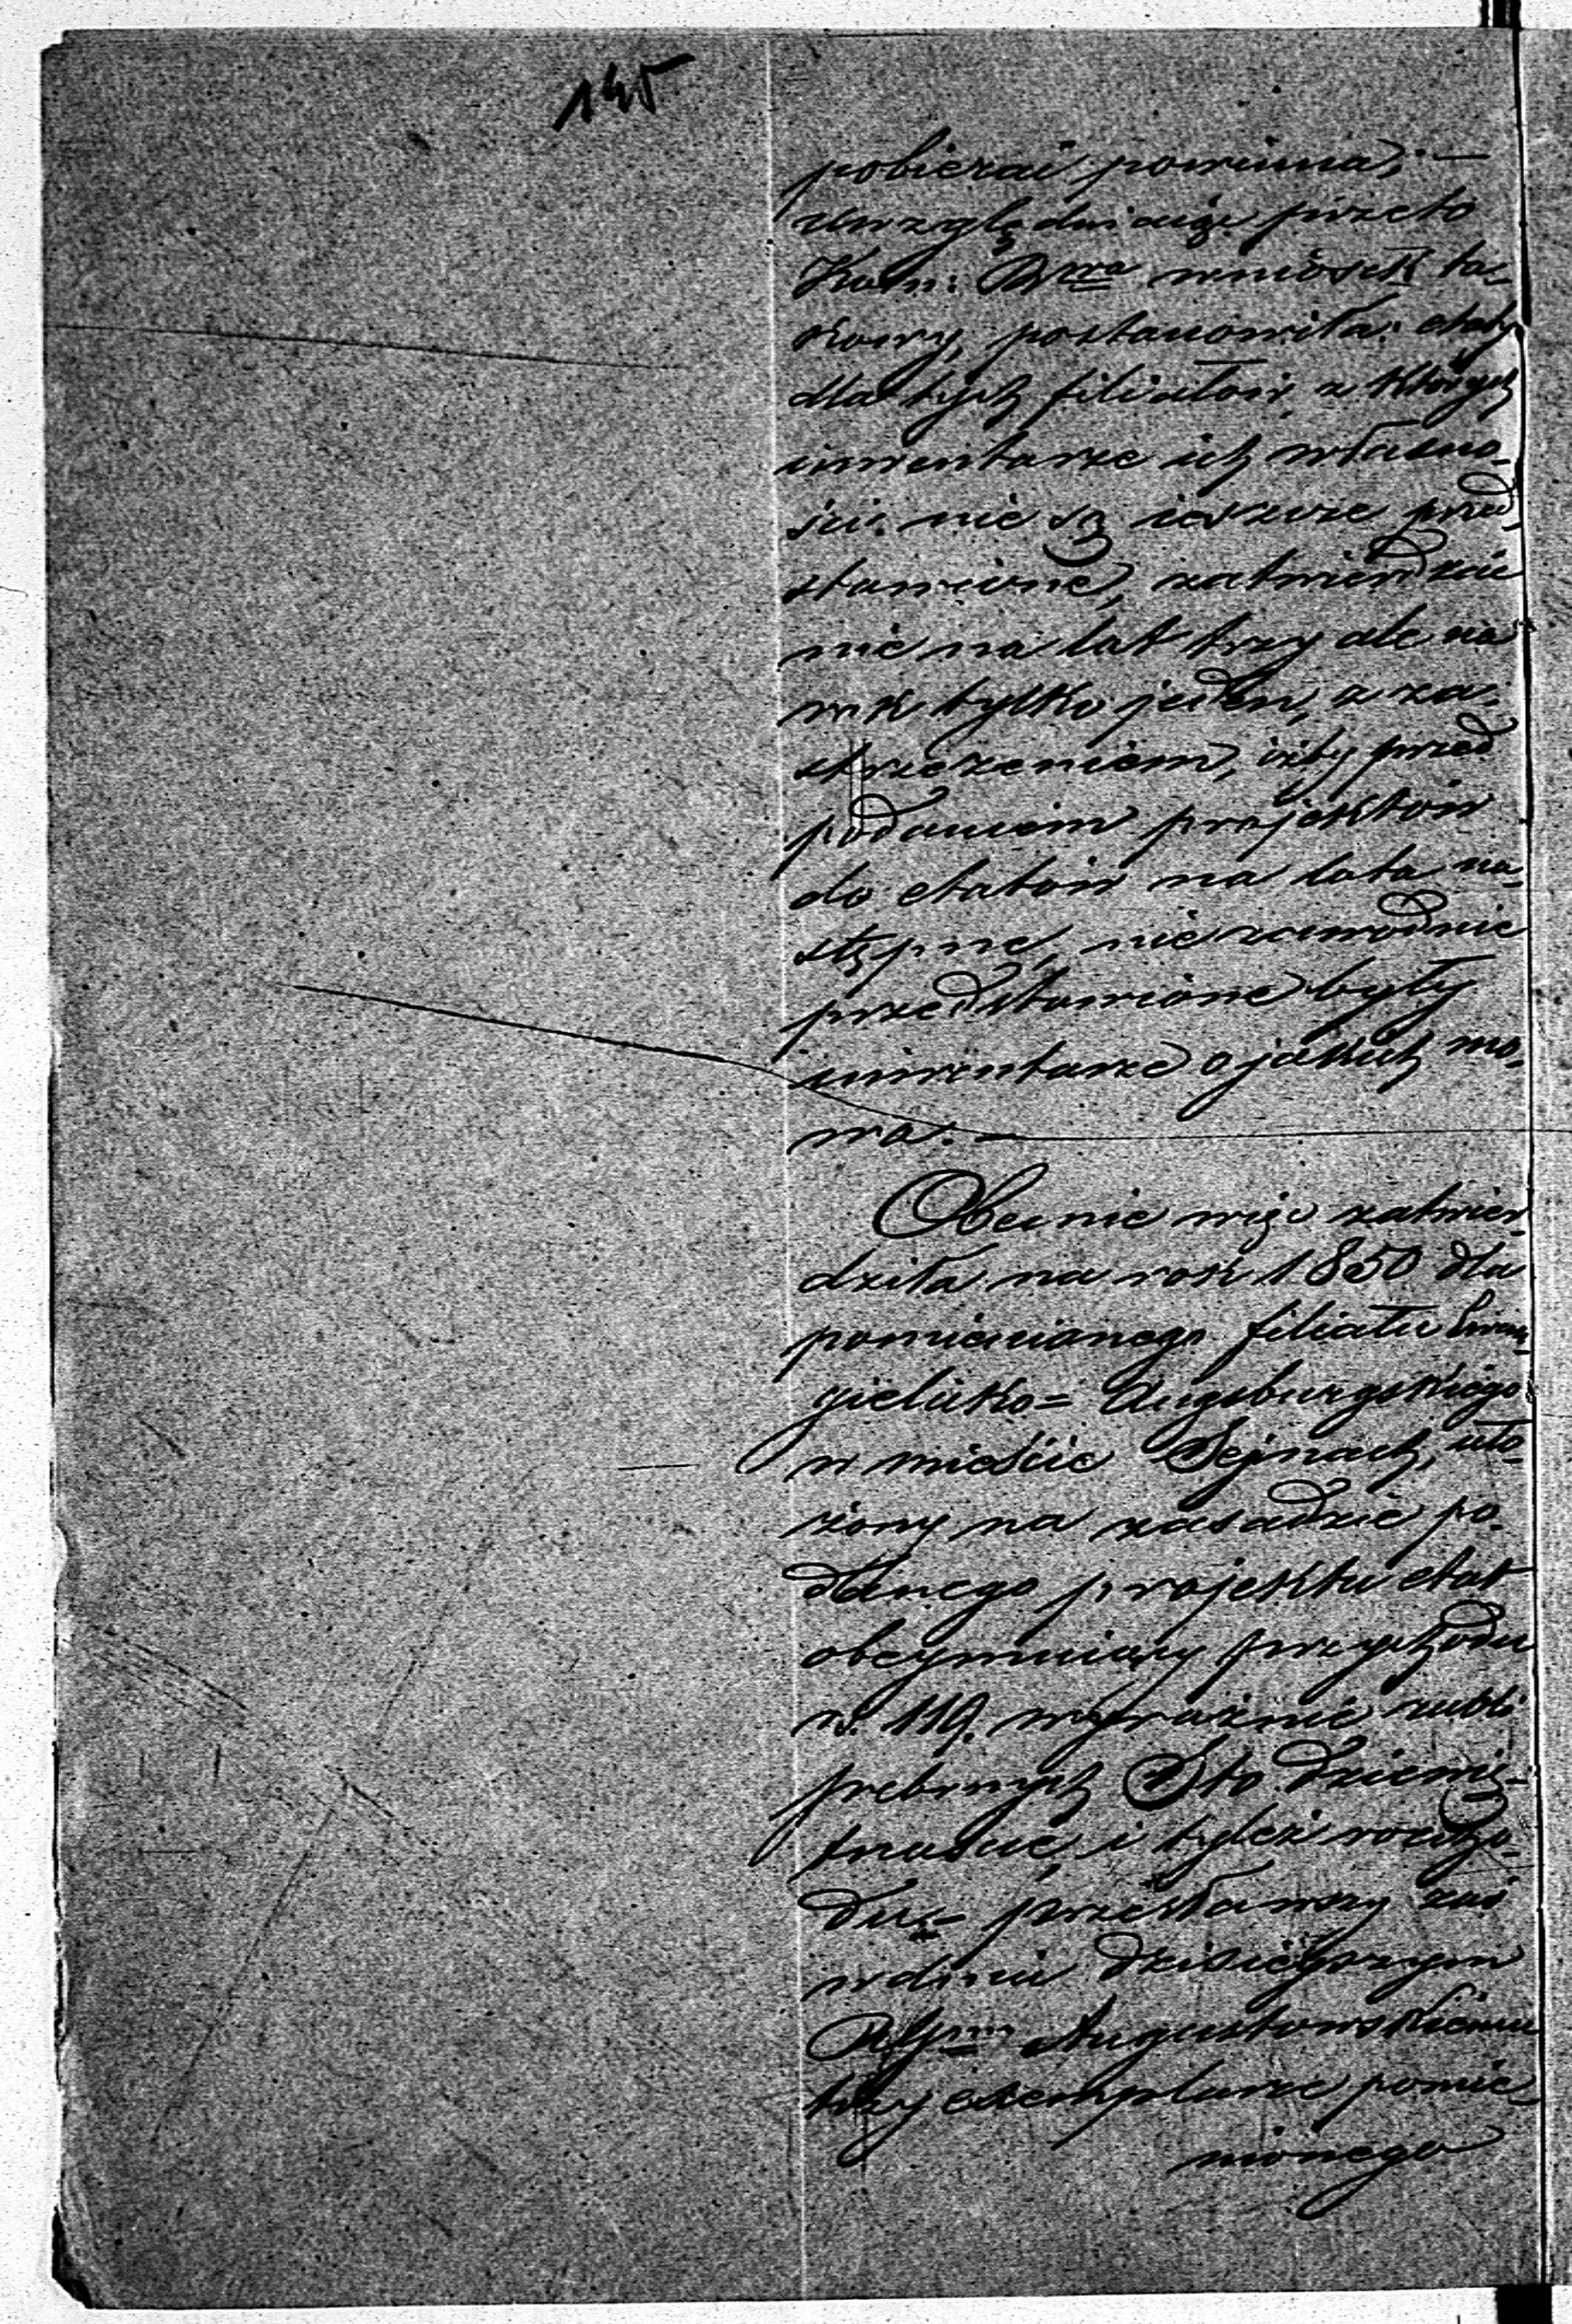 145
pobierać powinna; —
uwzględniając przeto
Kom: Rwa wniosek ta-
kowy, postanowiła: etaty
dla tych filiałów, z których
inwentarze ich własno-
ści nie są ieszcze przed-
stawione, zatwierdzać
nie na lat trzy ale na
rok tylko jeden, z za-
strzeżeniem, iżby przed
podaniem projektów
do etatów na lata na-
stępne, niezawodnie
przedstawione były
inwentarze o jakich mo-
wa. —
Obecnie więc zatwier-
dziła na rok 1850 dla
pomienionego filiału Ewan-
gielicko= Augsburgskiego
w mieście Sejnach, uło-
żony na zasadzie po-
danego projektu etat
obeymuiący przychodu
rs. 119. wyraźnie rubli
srebrnych Sto dziewię-
tnaście, i tyleż rozcho-
du; — przesławszy zaś
w dniu dzisieyszym
RGmu Augustowskiemu
trzy exemplarze pomie-
nionego